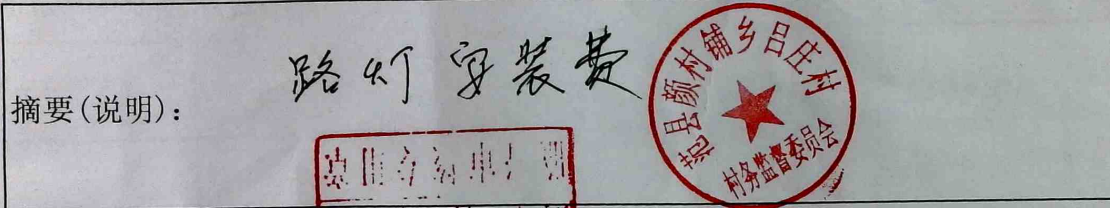 摘要(说明)：
路灯安装费
范县颜村铺乡吕庄村
村务监督委员会